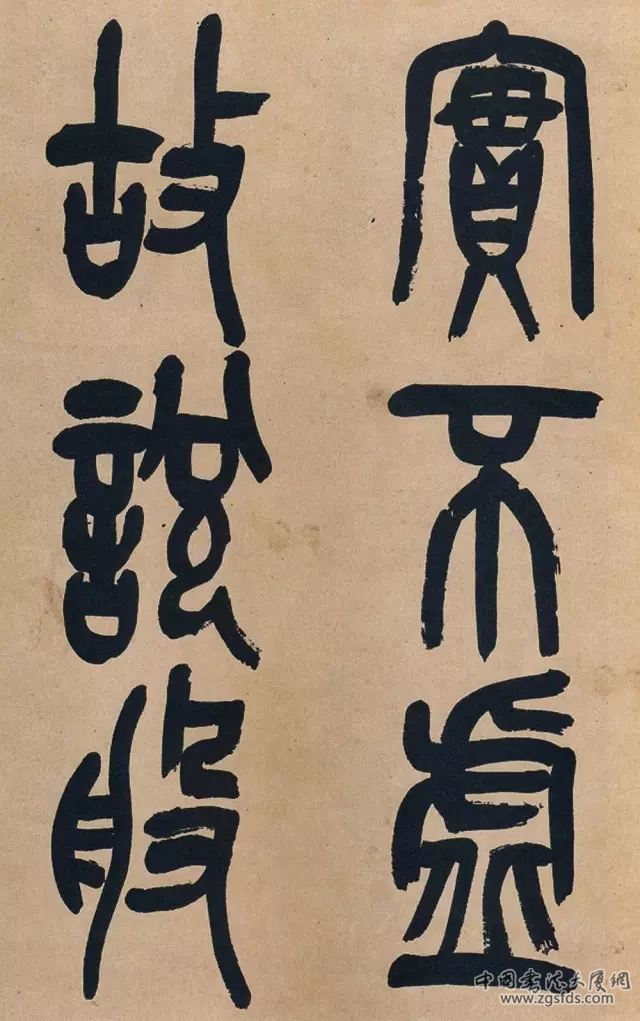 實不虛
故說般
中国书法大厦網
www.zgsfds.com